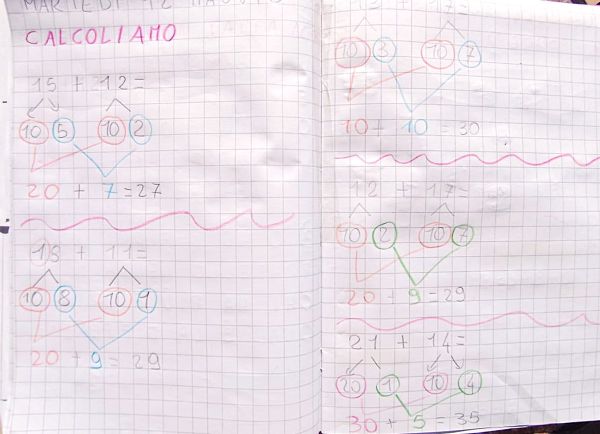 MARTEDÌ 12
CALCOLIAMO
15 + 12 =
10 5 10 2
20 + 7 = 27
18 + 11 =
10 8 10 1
20 + 9 = 29
13 + 17 =
10 3 10 7
10 + 10 = 30
12 + 17 =
10 2 10 7
20 + 9 = 29
21 + 14 =
20 1 10 4
30 + 5 = 35